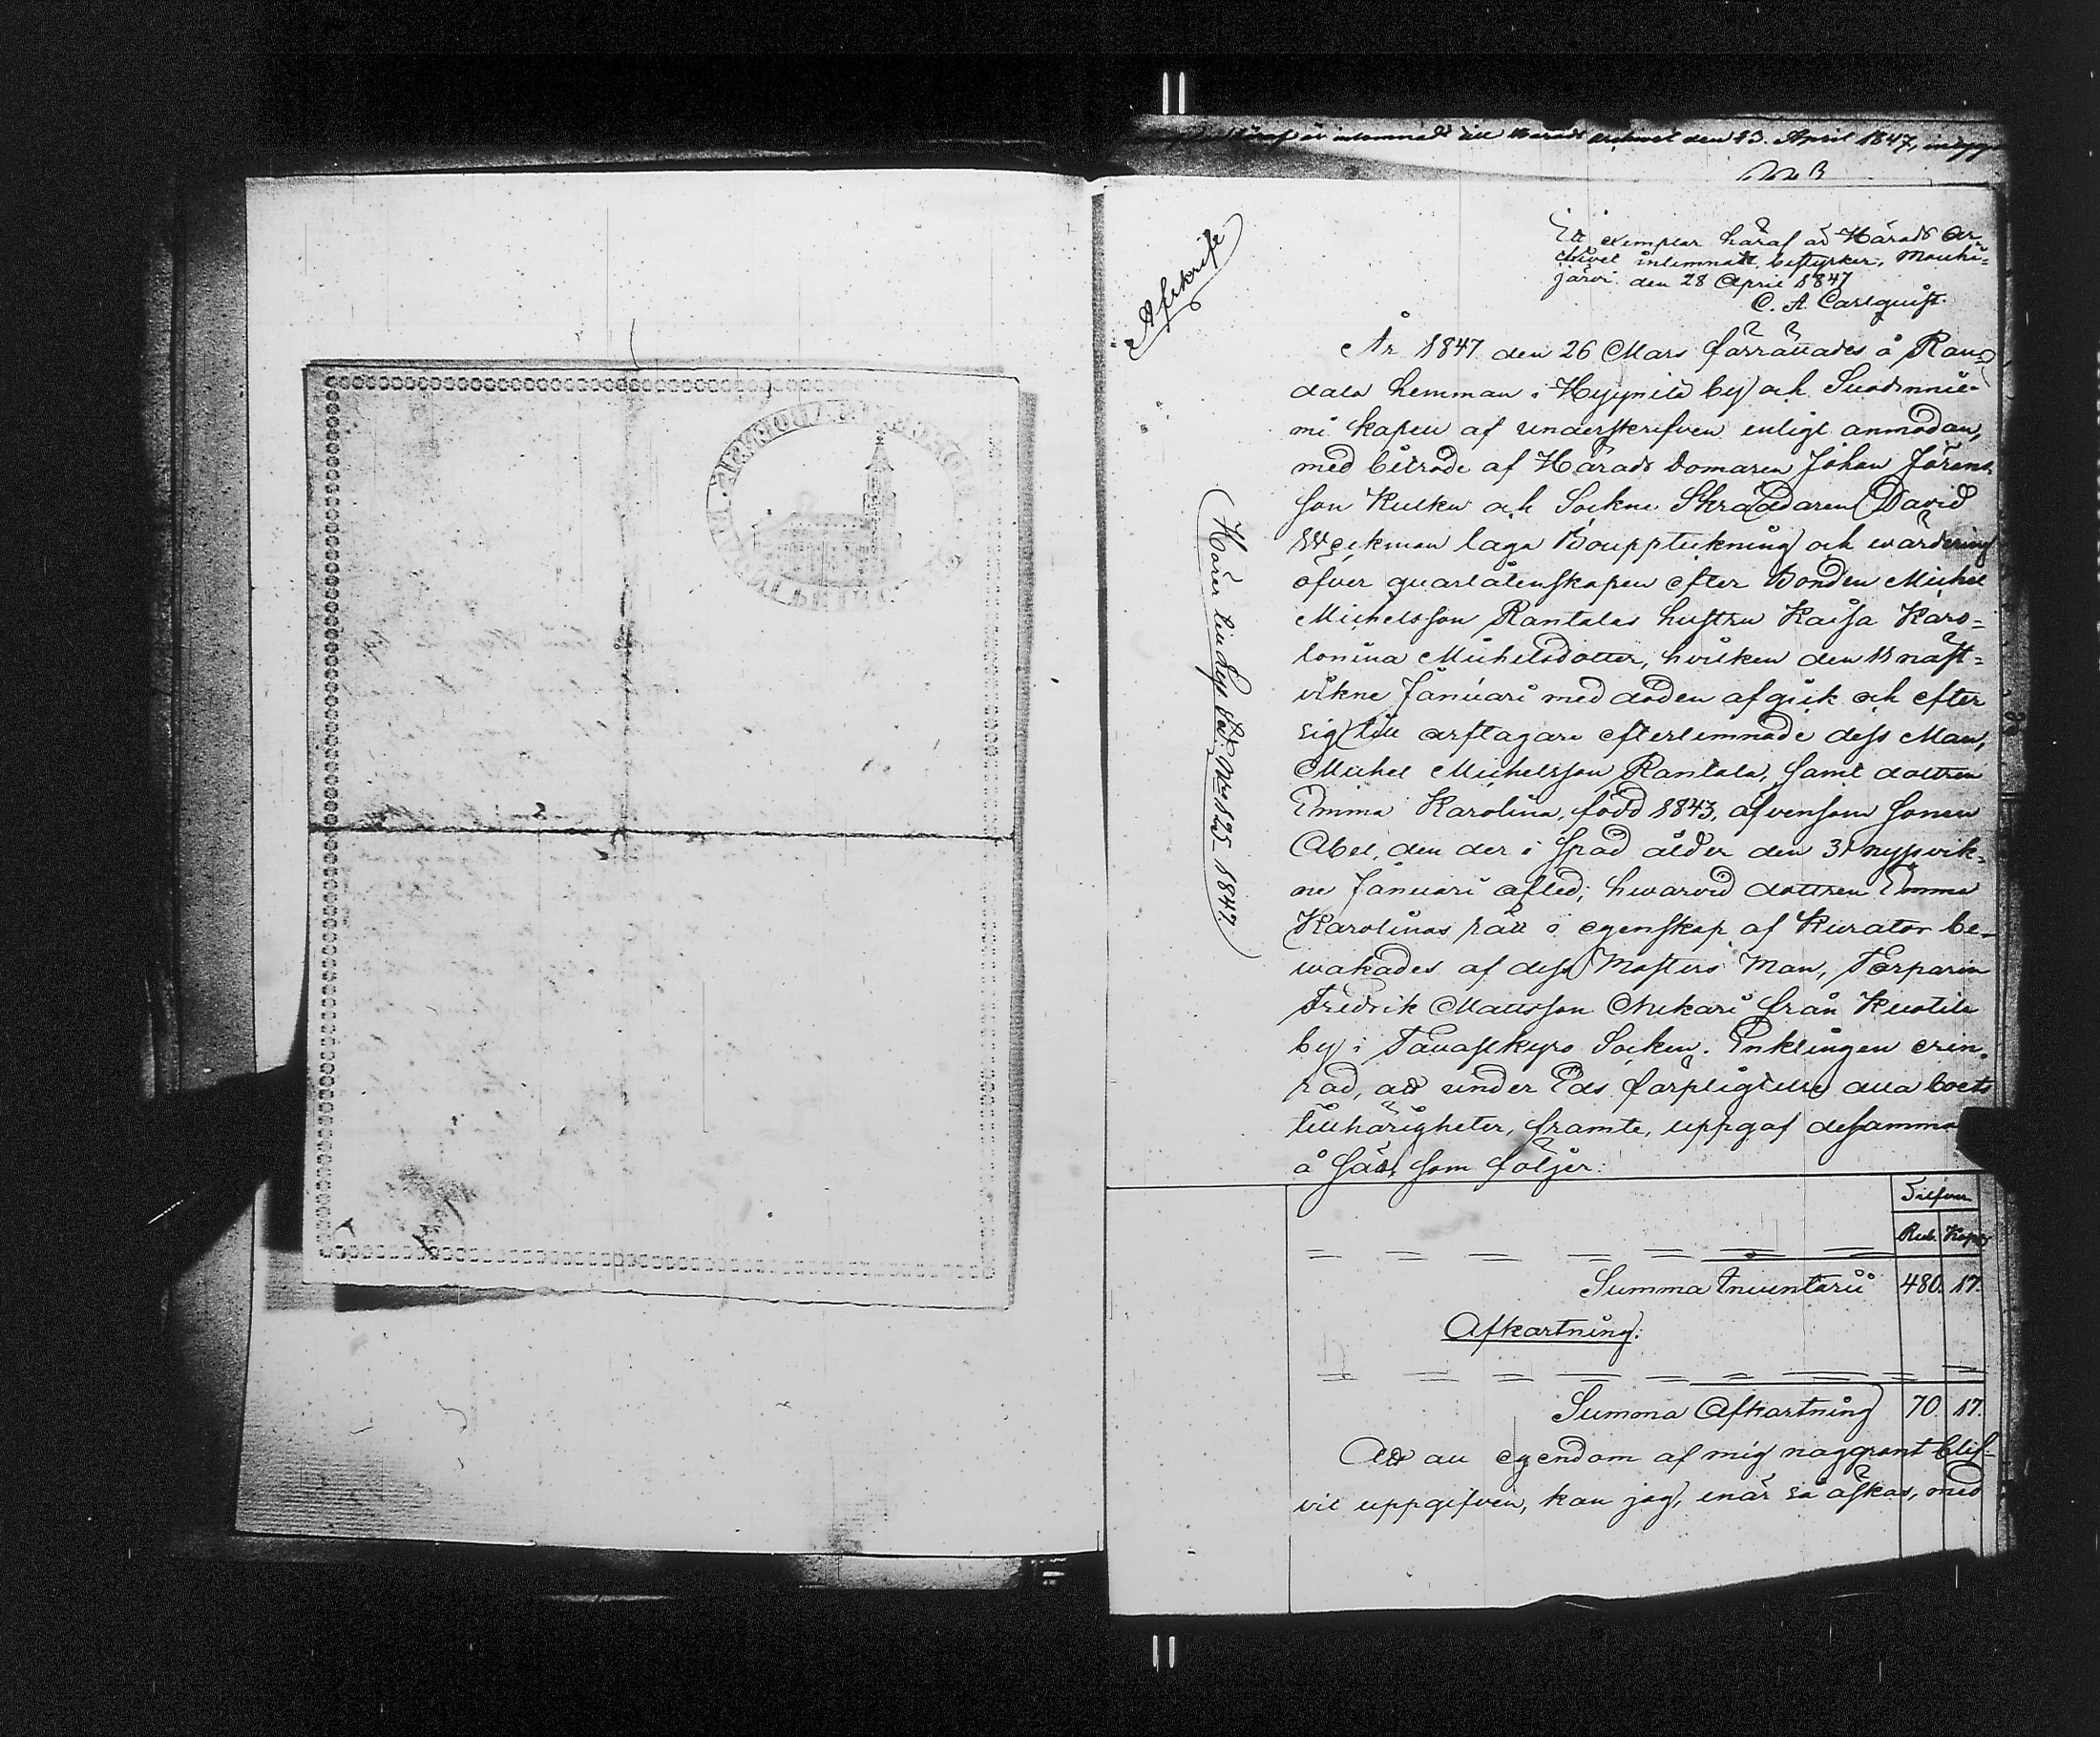 är inlemnadt till Härads archivet den 23. April 1847,
Afskrift
Ett exemplar häraf åt Härads Ar-
chivet inlemnadt, bestyrker, Mouhi-
järvi den 28 April 1847
C. A. Carlquist.
År 1847 den 26 Mars förrättades å Ran-
dala hemman i Hyynilä by och Suodennie-
mi kapell af underskrifven enligt anmodan,
med biträde af Härads Domaren Johan Jörans-
son Kulku och Sockne Skräddaren David
Weckman laga Bouppteckning och wärdering
öfver quarlåtenskapen efter Bonden Michel
Michelsson Rantalas hustru Kaisa Karo-
lonina Michelsdotter, hvilken den 11 näst-
vikne Januari med döden afgick och efter
sig till arftagare efterlemnade dess Man,
Michel Michelsson Rantala, samt dottren
Emma Karolina, född 1843, äfvensom sonen
Abel, den der i späd ålder den 31 nyssvik-
ne Januari afled; hwarvid dottren Emma
Karolinas rätt i egenskap af Kurator be-
wakades af dess Mosters Man, Torparen
Fredrik Mattsson Nukari från Kustila
by i Tavastkyro Socken. Enklingen erin-
rad, att under Eds förpligtelse alla boets
tillhörigheter, framte, uppgaf desamma
å sätt, som följer:
Silfver
Rub. Kop.
Summa Inventarii 480. 17.
Afkortning:
Summa Afkortning 70. 17.
Att all egendom af mig noggrant blif-
vit uppgifven, kan jag, enär så äskas, med
Hörer till Exp. Dbl. No 125 1847.